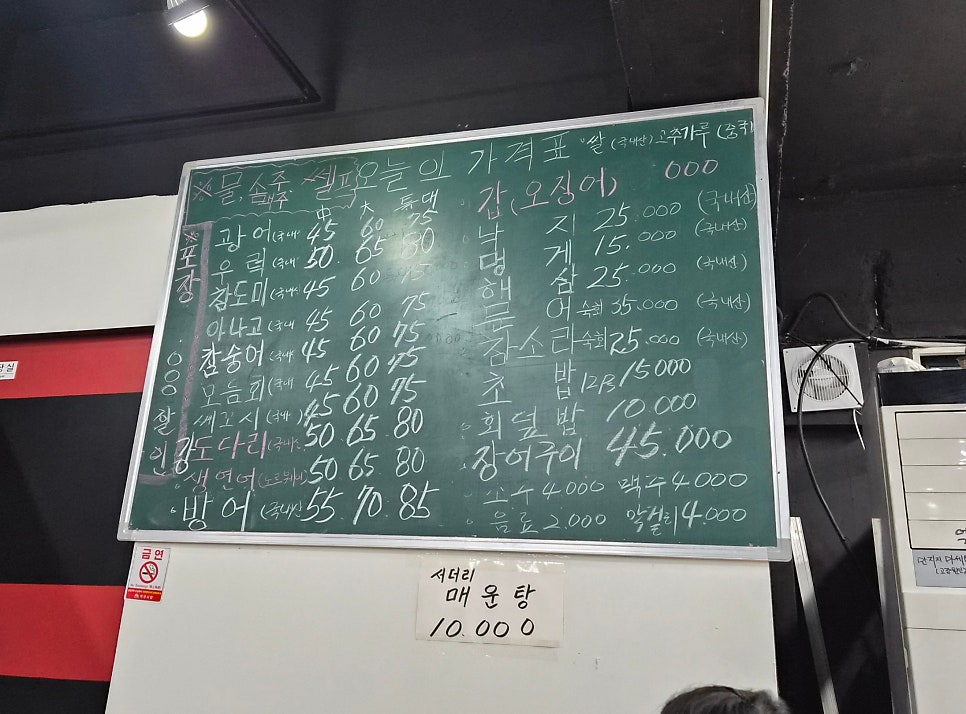 ※물,소주 맥주 쎌프
오늘의 가격표
쌀 (국내산) 고추가루 (중국)
中 大 특대
광어 (국내 45 60 75
우럭 (국내 50 65 80
참도미 (국내 45 60 75
아나고 (국내 45 60 75
참숭어 (국내 45 60 75
모듬회 (국내 45 60 75
세꼬시 (국내 45 60 75
강도다리 (국내 50 65 80
생연어 (노르웨이 50 65 80
방어 (국내산 55 70 85
※포장
000
할인
갑(오징어) 000
낙지 25.000 (국내산)
멍게 15.000 (국내산)
해삼 25.000 (국내산)
문어 숙회 35.000 (국내산)
참소라 숙회 25.000 (국내산)
초밥 12P 15000
회덮밥 10.000
장어구이 45.000
소주 4.000 맥주 4.000
음료 2.000 막걸리 4.000
금연
서더리
매운탕
10.000